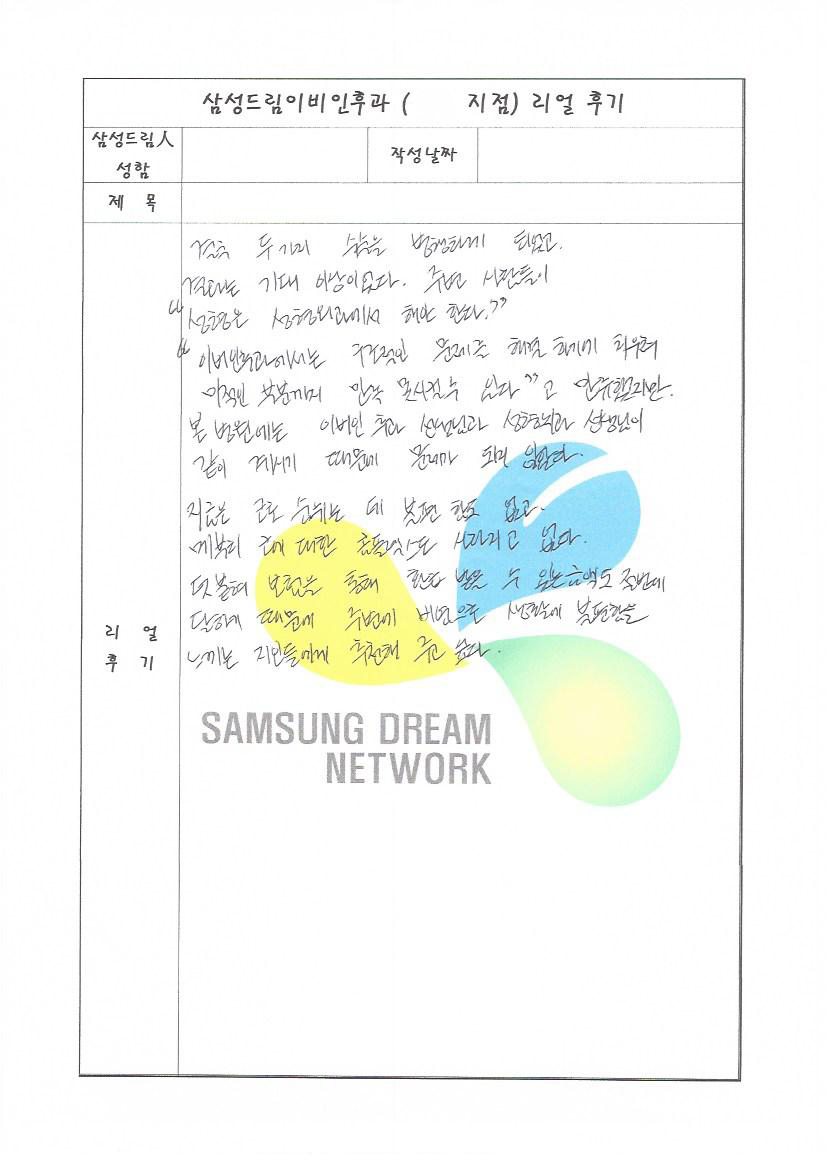 삼성드림이비인후과 ( 지점) 리얼 후기
삼성드림人
성함
작성날짜
제 목
결국 두가지 수술을 병행하게 되었고.
결과는 기대 이상이었다. 주변 사람들이
"성형은 성형외과에서 해야 한다."
"이비인후과에서는 구조적인 문제를 해결 하기에
미적인 부분까지 만족 수 없다"고 만류했지만.
본 병원에는 이비인후과 선생님과 성형외과 선생님이
같이 계시기 때문에 문제가 되지 않았다.
지금은 코로 숨쉬는 데 불편함도 없고.
매부리 코에 대한 콤플렉스도 사라지고 없다.
더불어 보험을 통해 환급 받을 수 있는 금액도 절반에
달하기 때문에 주변에 비염으로 생활에 불편함을
느끼는 지인들에게 추천해 주고 싶다.
리 얼
후 기
SAMSUNG DREAM
NETWORK